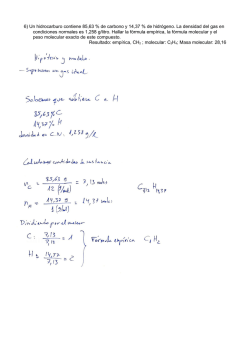 6) Un hidrocarburo contiene 85,63 % de carbono y 14,37 % de hidrógeno. La densidad del gas en
condiciones normales es 1,258 g/litro. Hallar la fórmula empírica, la fórmula molecular y el
peso molecular exacto de este compuesto.
Resultado: empírica, CH2 ; molecular: C2H4; Masa molecular: 28,16
Hipótesis y modelo.
- Suponemos un gas ideal
Sabemos que contiene C y H
85,63% C
14,37% H
densidad en C.N. 1,258 g/l
Calculamos cantidades de sustancia
nC = 85,63 g / 12 (g/mol) = 7,13 moles
nH = 14,37 g / 1 (g/mol) = 14,37 moles
C7,13 H14,37
Dividiendo por el menor
C: 7,13 / 7,13 = 1
H: 14,37 / 7,13 = 2
Fórmula empírica C1H2